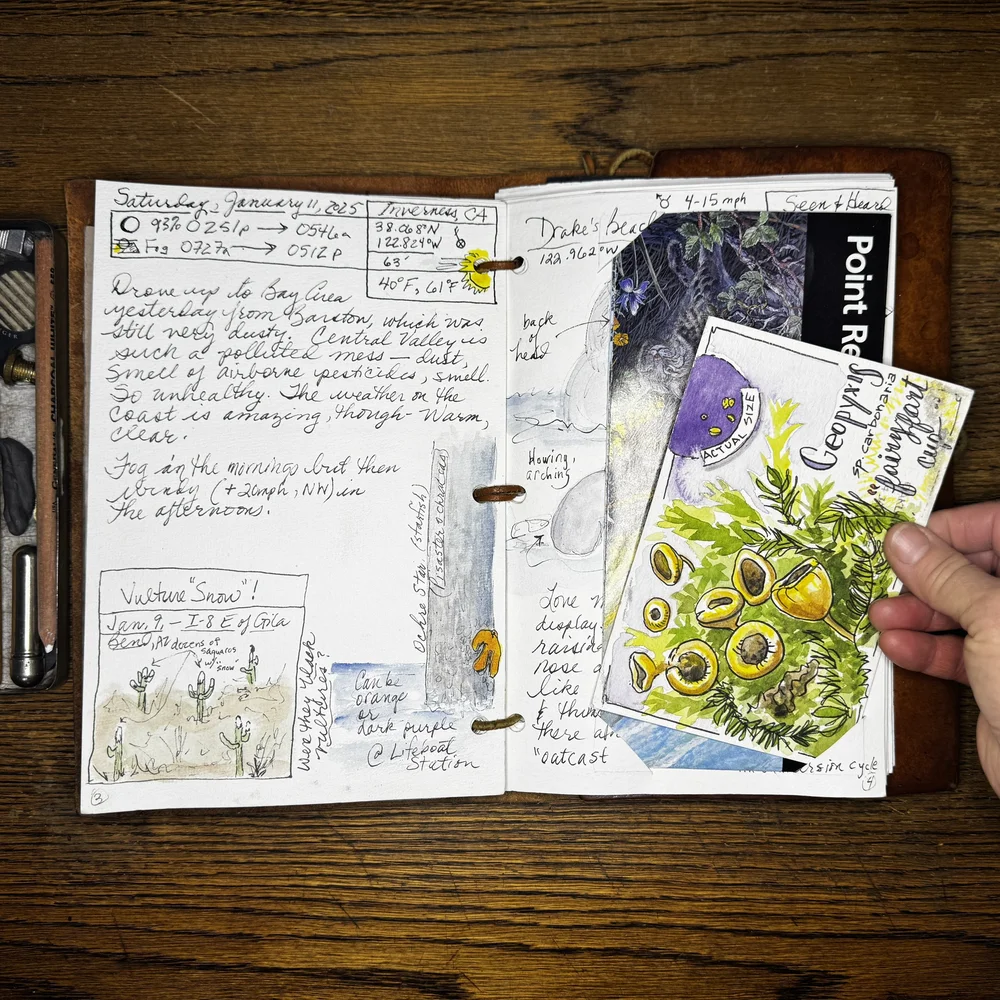 Saturday, January 11, 2025
93% 0251p → 0546a
Fog 0727a → 0512p
Inverness, CA
38.068°N
122.824°W
63'
40°F, 61°F
Drove up to Bay Area
yesterday from Barstow, which was
still very dusty. Central Valley is
such a polluted mess — dust,
smell of airborne pesticides, smell.
So unhealthy. The weather on the
coast is amazing, though - Warm,
clear.
Fog in the mornings but then
windy (+20mph, NW) in
the afternoons.
Vulture "Snow"!
Jan. 9, - I-8 E of Gila
Bend, AZ
dozens of
saguaros
w/ "snow"
Was they black
vultures?
Ochre Star (starfish)
(Pisaster ochraceus)
Can be
orange
or
dark purple
@ Lifeboat
Station
3
4-15 mph
Seen & Heard
Drake's Beac
122.962°W
back
of
head
Blowing,
arching
Love
display
raising
nose
like
& thum
there
"outcast
rsion cycle
4
Point Re
ACTUAL SIZE
Geopyxis
sp. carbonaria
"fairy fart
cup"